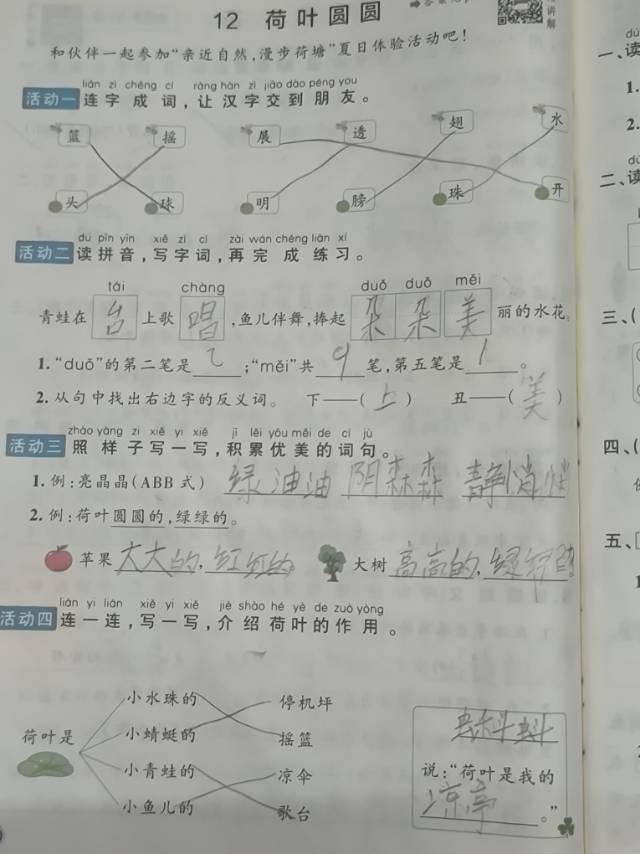 12 荷叶圆圆
和伙伴一起参加“亲近自然,漫步荷塘”夏日体验活动吧!
lián zì chéng cí ràng hàn zì jiāo dào péng you
活动一 连字成词,让汉字交到朋友。
篮 摇 展 透 翅 水
头 球 明 膀 珠 开
dú pīn yīn xiě zì cí zài wán chéng liàn xí
活动二 读拼音,写字词,再完成练习。
tái chàng duǒ duǒ měi
青蛙在 台 上歌 唱 ,鱼儿伴舞,捧起 朵 朵 美 丽的水花。
1.“duǒ”的第二笔是 ㇈ ;“měi”共 9 笔,第五笔是 丨 。
2.从句中找出右边字的反义词。 下——( 上 ) 丑——( 美 )
zhào yàng zi xiě yi xiě jī lěi yōu měi de cí jù
活动三 照样子写一写,积累优美的词句。
1.例:亮晶晶(ABB式) 绿油油 阴森森 静悄悄
2.例:荷叶圆圆的,绿绿的。
苹果 大大的, 红红的 大树 高高的, 绿绿的
lián yi lián xiě yi xiě jiè shào hé yè de zuò yòng
活动四 连一连,写一写,介绍荷叶的作用。
小水珠的 停机坪
荷叶是 小蜻蜓的 摇篮
小青蛙的 凉伞
小鱼儿的 歌台
蝌蚪
说:“荷叶是我的
凉亭 。”
一、读
1.
2.
二、读
三、(
四、(
五、